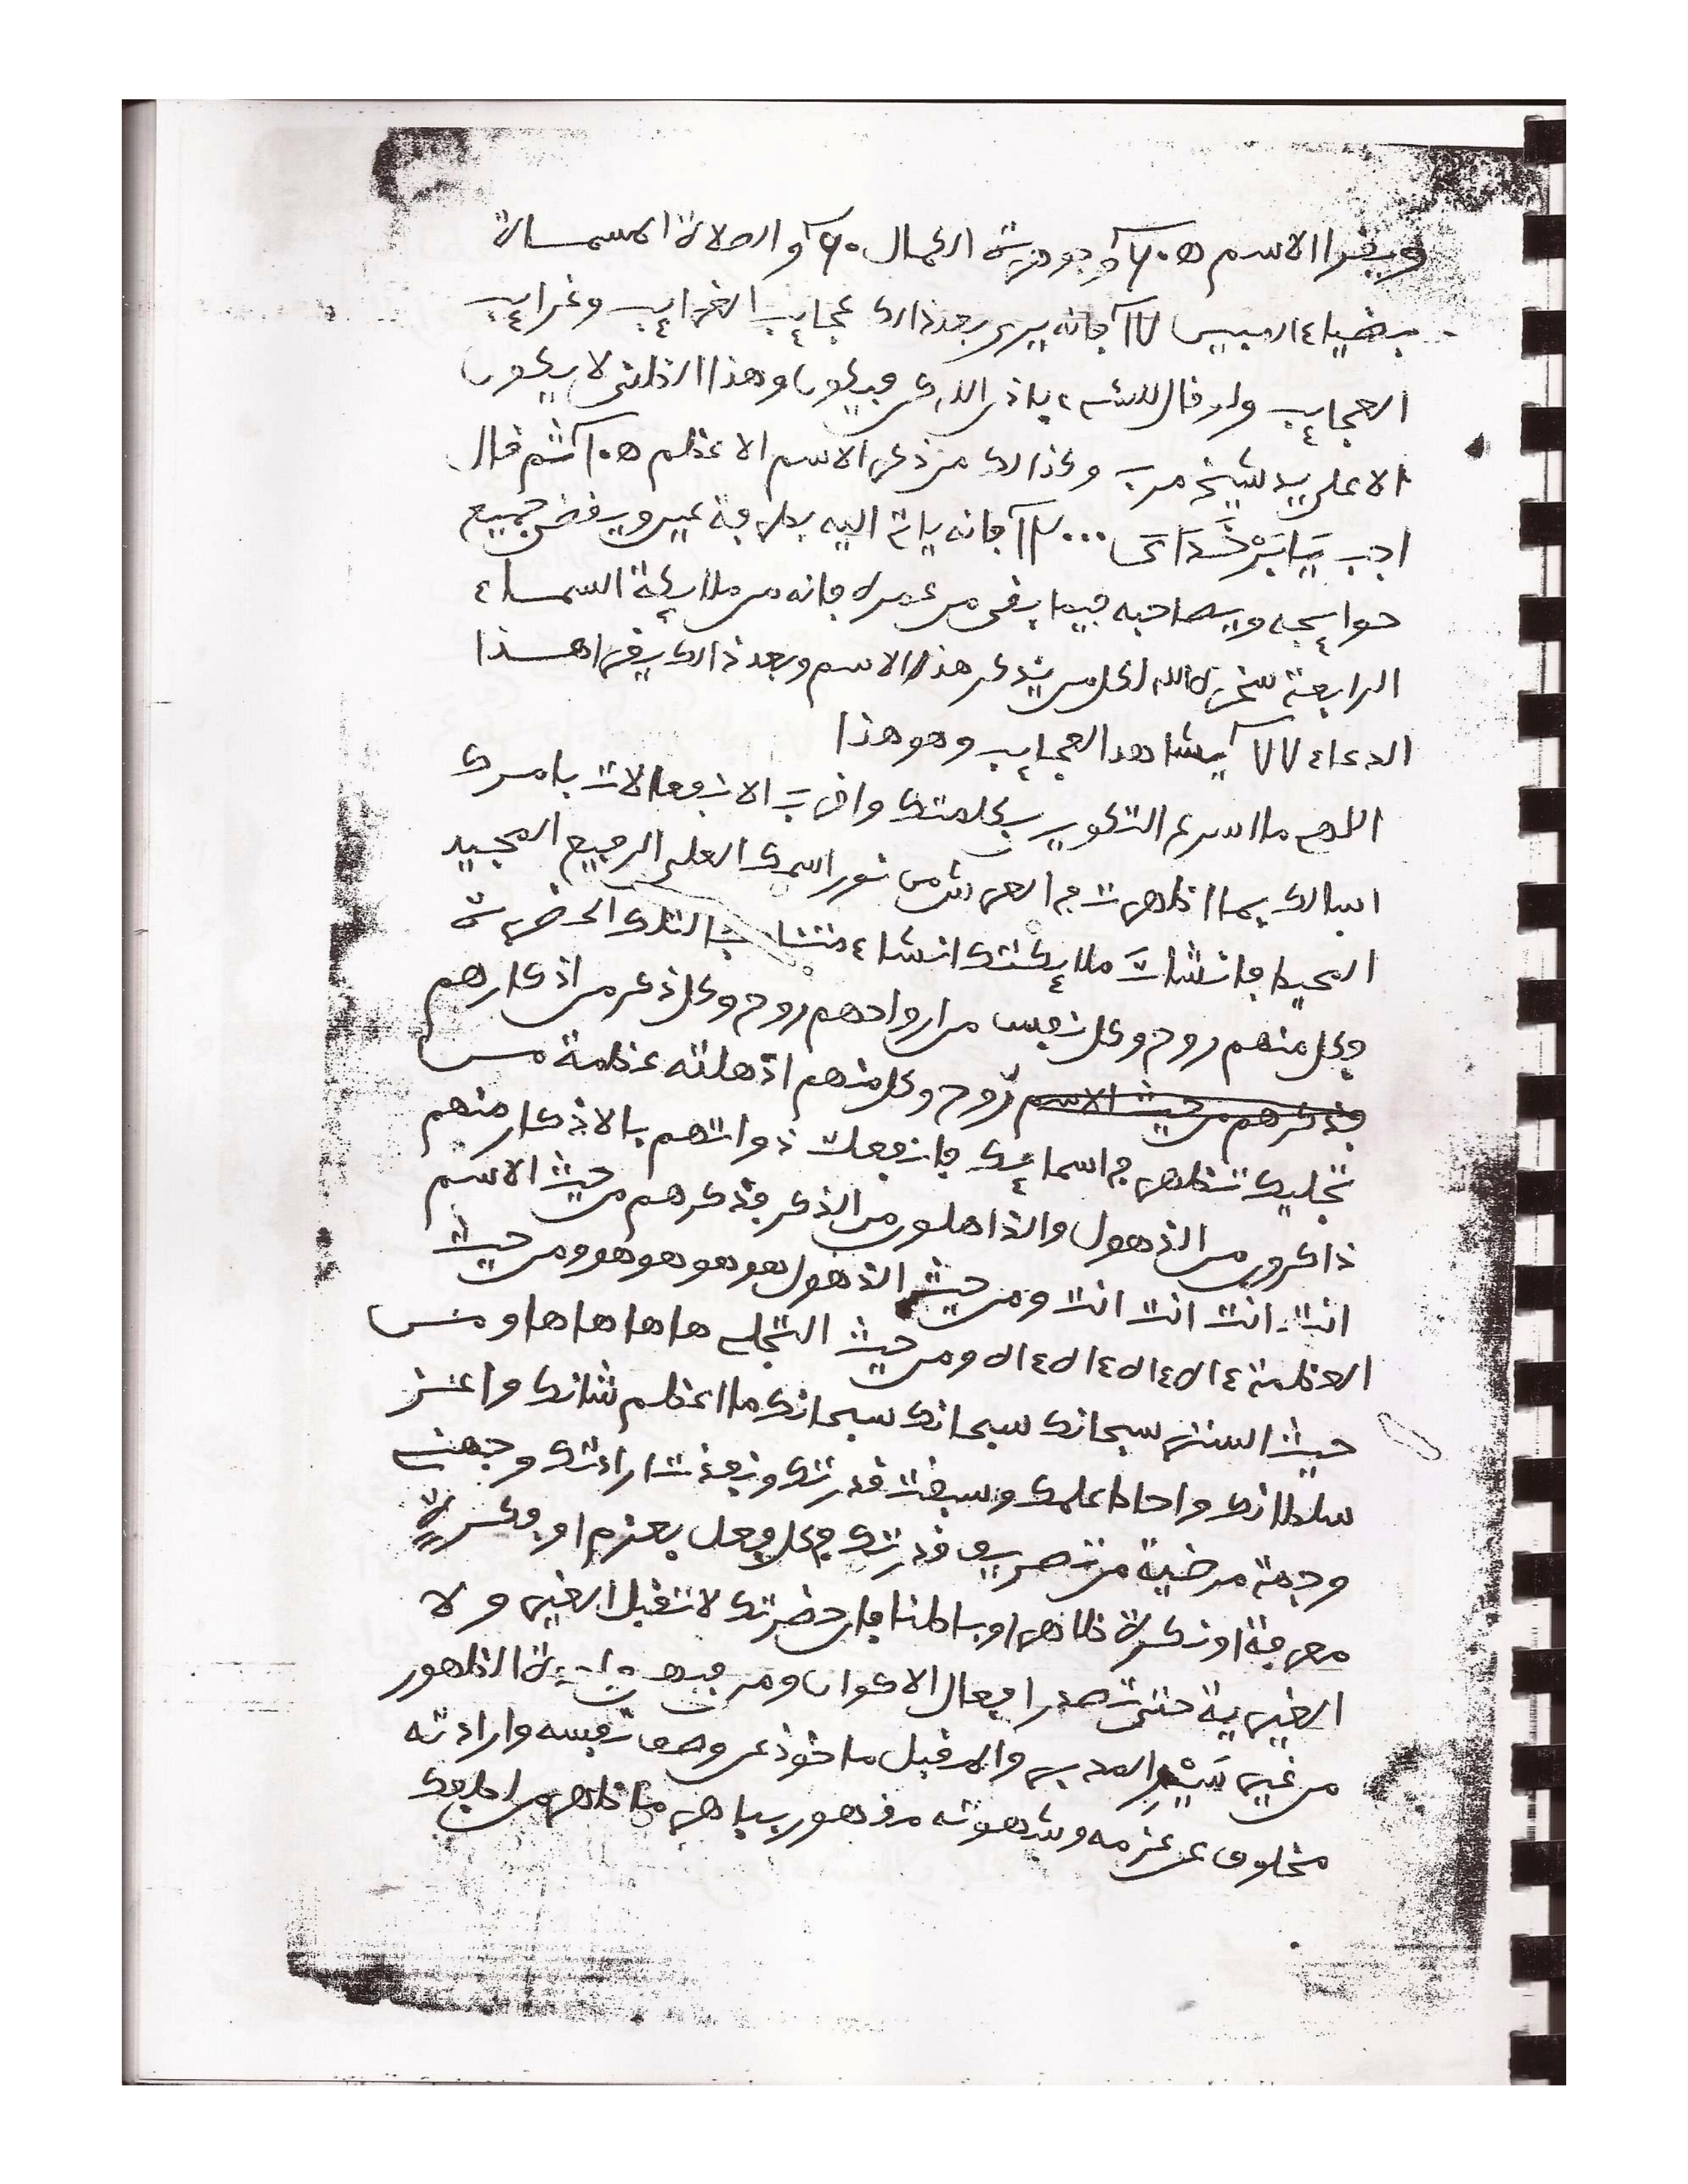 ويقرا الاسم ه ٦٠ وجوهرة الكمال ٦٠ والصلاة المسماة
بضياء ١٧ فانه يرى بعد ذالك عجايب الغرايب وغرايب
العجايب ولو قال للشيء باذن الله كن فيكون وهذا التلقى لا يكون
الا على يد شيخ مرب وكذالك من ذكر الاسم الاعظم ه ثم قال
اجب فانه ياتي اليه بلا رفة عين ويقضى جميع
حوايجه ويصاحبه فيما بقى من عمره فانه من ملايكة السماء
الرابعة سخره الله لكل من يذكر هذا الاسم وبعد ذالك يقرا هذا
الدعاء ٧٧ يشاهد العجايب وهو هذا
اللهم ما اسرع التكوين بكلمتك واقرب الانفعالات بامرك
اسالك بما اظهرت في العرش من نور اسمك العلي الرفيع المجيد
المحيط فانشات ملايكتك انشاء مناسبا لتلك الحضرة
فكل منهم روح وكل نفس من ارواحهم روح وكل ذكر من اذكارهم
فذكرهم من حيث الاسم روح وكل منهم اذهلته عظمة من
تجليك تظهر في اسمايك فانفعلت ذواتهم بالاذكار منهم
ذاكرون من الذهول والذاهلون من الذكر فذكرهم من حيث الاسم
انت انت انت انت ومن حيث الذهول هو هو هو هو ومن حيث
العظمة ءاه ءاه ءاه ءاه ومن حيث التجلي ها ها ها ها ومن
حيث الستر سبحانك سبحانك سبحانك ما اعظم شانك واعز
سلطانك واحاط علمك وسبقت قدرتك ونفذت ارادتك وجهني
وجهة مرضية من تصريف قدرتك فكل فعل بعزم او فكرة
معرفة او نكرة ظاهرا وباطنا فان حضرتك لا تقبل الغير ولا
الغيرية حتى تصدر افعال الاكوان ومن فيه الظهور
من غير سير المدبر والمقبل ماخوذ عن وصف نفسه وارادته
مخلوف عن عزمه وشهوته مقهور بباهر ما ظهر من لطفك